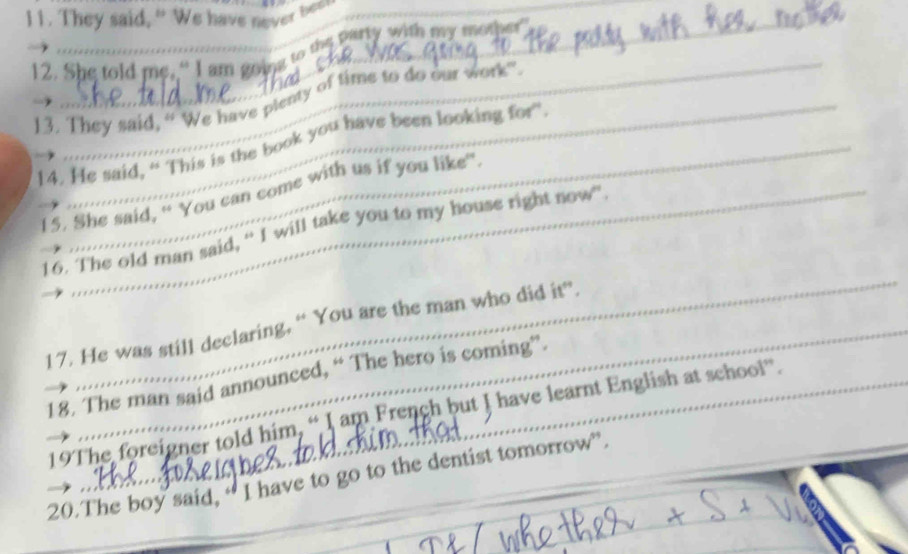 11. They said, " We have never
→
12. She told me, " I am going to the party with my mother".
→ She told me that she was going to the party with her mother
13. They said, " We have plenty of time to do our work".
→
14. He said, " This is the book you have been looking for".
→
15. She said, " You can come with us if you like".
→
16. The old man said, " I will take you to my house right now".
→
17. He was still declaring, " You are the man who did it".
→
18. The man said announced, " The hero is coming".
→
19The foreigner told him, " I am French but I have learnt English at school".
→ the foreigner told him that
20.The boy said, " I have to go to the dentist tomorrow".
If / whether + S + V